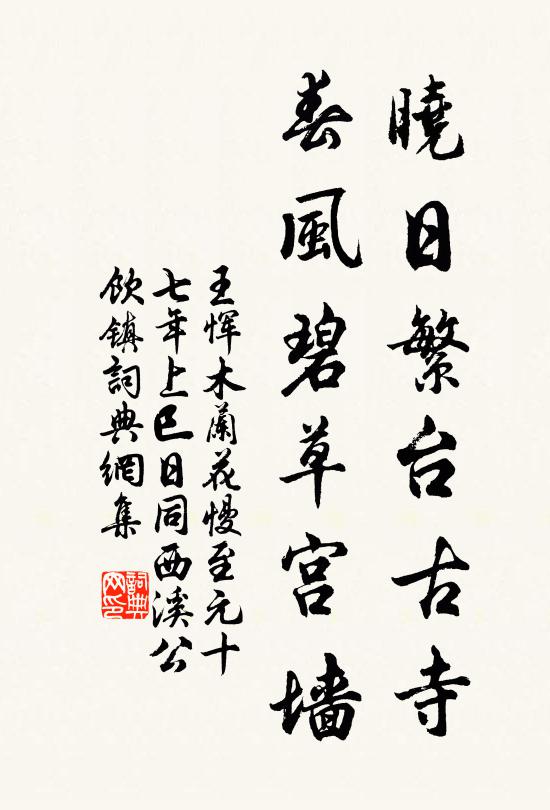 曉日繁台古寺
春風碧草宫墙
王恽木蘭花慢至元十
七年上巳日同西溪公
飲鎮詞典網集
詞典网印